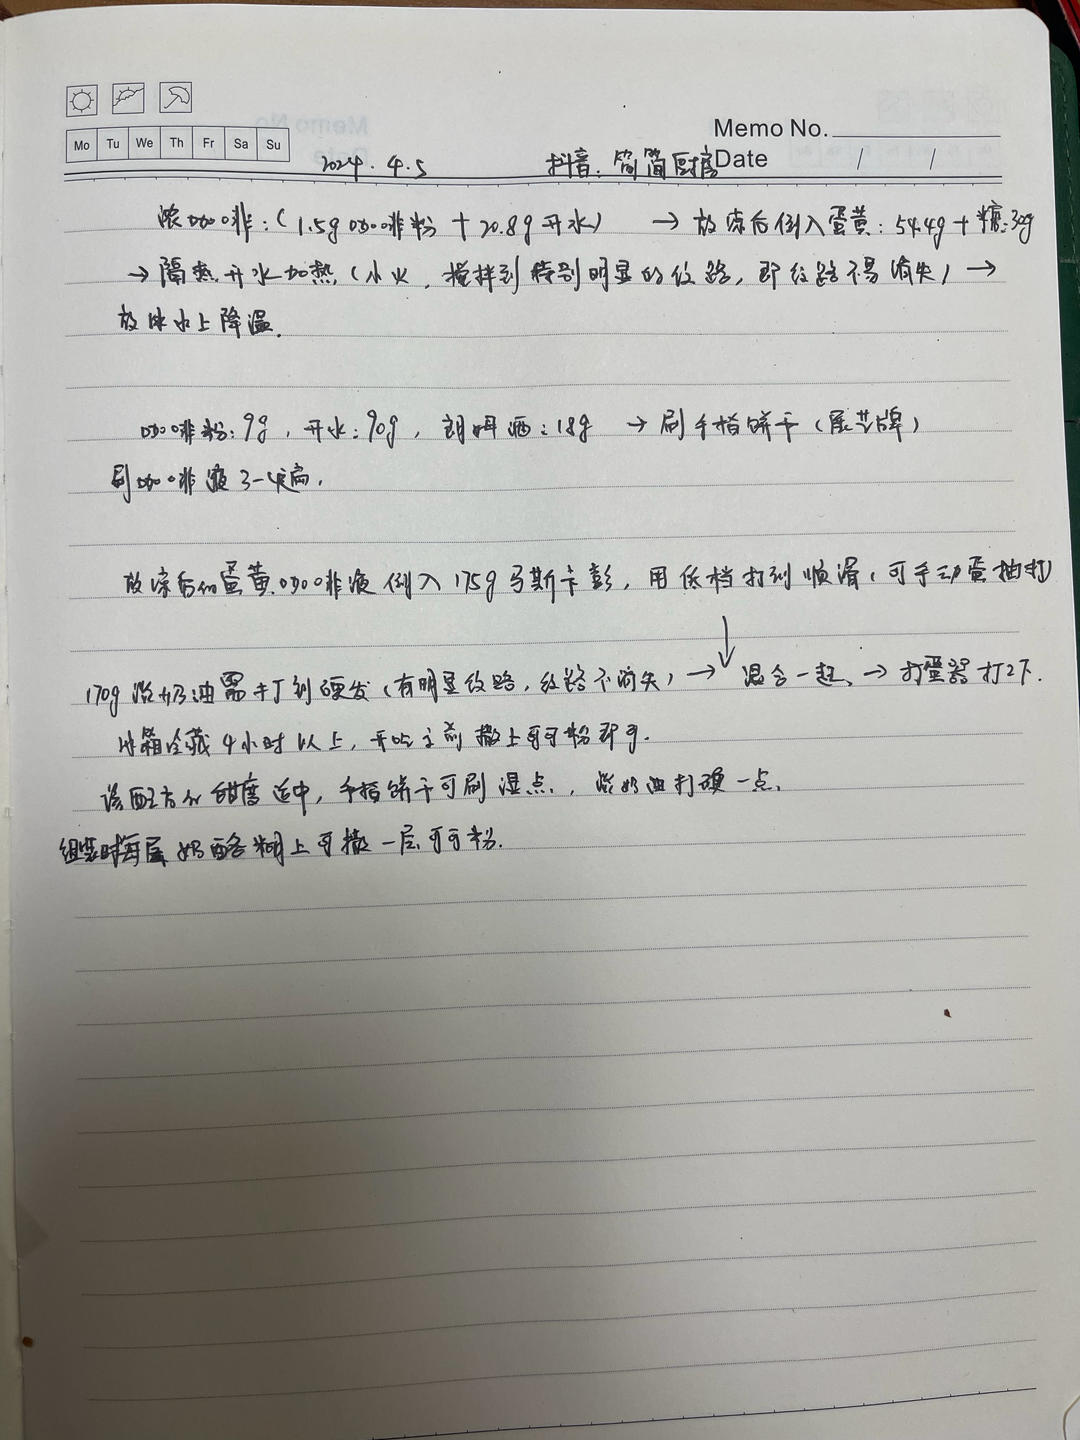 Memo No.
Mo Tu We Th Fr Sa Su
2024.4.5 抖音:简简厨房 Date / /
浓咖啡:(1.5g咖啡粉+20.8g开水) → 放凉后倒入蛋黄:54.4g+糖:30g
→隔热开水加热(小火,搅拌到特别明显的纹路,即纹路不易消失) →
放冰水上降温.
咖啡粉:9g,开水:90g,朗姆酒:18g → 刷手指饼干(
牌)
刷咖啡液3-4遍.
放凉后的蛋黄咖啡液倒入175g马斯卡彭,用低档打到顺滑(可手动蛋抽打)
↓
170g淡奶油需要打到硬发(有明显纹路,纹路不消失) → 混合一起、→ 打蛋器打2下.
冰箱冷藏4小时以上,开吃之前撒上可可粉即可.
该配方的甜度适中,手指饼干可刷湿点.,淡奶油打硬一点.
组装时每层奶酪糊上可撒一层可可粉.